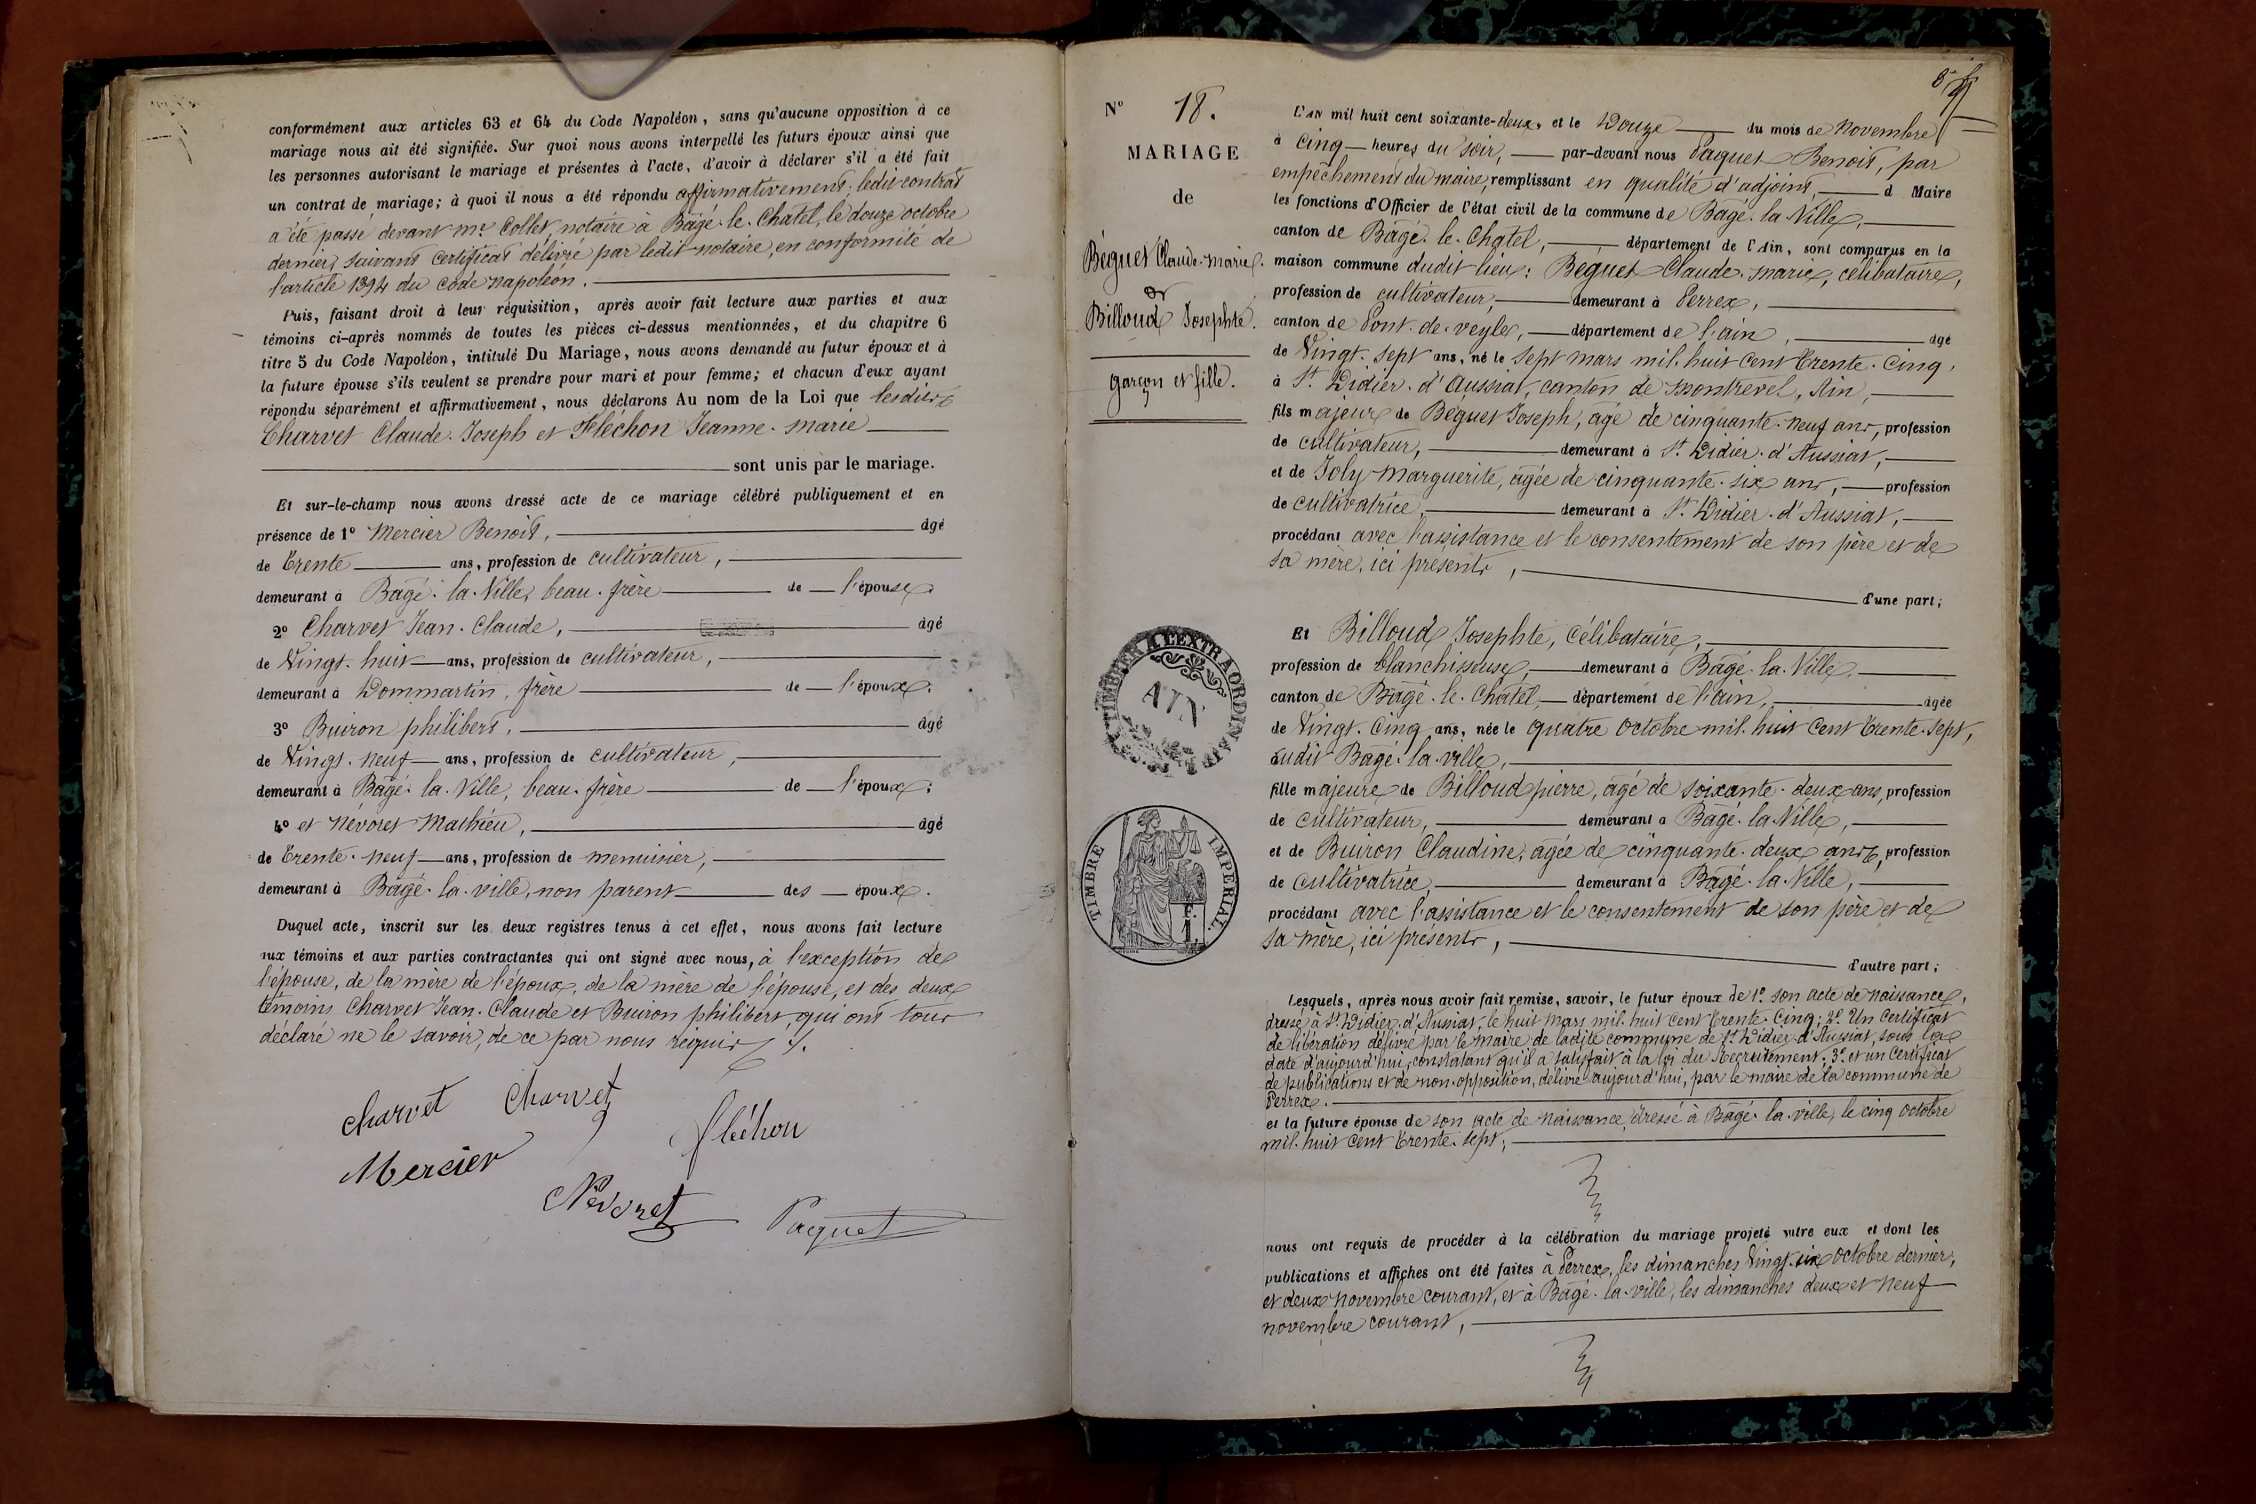 conformément aux articles 63 et 64 du Code Napoléon, sans qu'aucune opposition à ce
mariage nous ait été signifiée. Sur quoi nous avons interpellé les futurs époux ainsi que
les personnes autorisant le mariage et présentes à l'acte, d'avoir à déclarer s'il a été fait
un contrat de mariage; à quoi il nous a été répondu affirmativement; ledit contrat
a été passé devant me Collet, notaire à Bâgé-le-Chatel, le douze octobre
dernier, suivant certificat délivré par ledit notaire, en conformité de
l'article 1394 du code napoléon.
Puis, faisant droit à leur réquisition, après avoir fait lecture aux parties et aux
témoins ci-après nommés de toutes les pièces ci-dessus mentionnées, et du chapitre 6
titre 5 du Code Napoléon, intitulé Du Mariage, nous avons demandé au futur époux et à
la future épouse s'ils veulent se prendre pour mari et pour femme; et chacun d'eux ayant
répondu séparément et affirmativement, nous déclarons Au nom de la Loi que lesdits
Charvet Claude-Joseph et Fléchon Jeanne-marie
sont unis par le mariage.
Et sur-le-champ nous avons dressé acte de ce mariage célébré publiquement et en
présence de 1º Mercier Benoît, âgé
de Trente ans, profession de cultivateur,
demeurant à Bâgé-la-Ville, beau-frère de l'épouse.
2º Charvet Jean-Claude, âgé
de Vingt-huit ans, profession de cultivateur,
demeurant à Dommartin, frère de l'époux.
3º Buiron philibert, âgé
de Vingt-neuf ans, profession de cultivateur,
demeurant à Bâgé-la-Ville, beau-frère de l'époux;
4º et Névoret Mathieu, âgé
de Trente-neuf ans, profession de menuisier,
demeurant à Bâgé-la-ville, non parent des époux.
Duquel acte, inscrit sur les deux registres tenus à cet effet, nous avons fait lecture
aux témoins et aux parties contractantes qui ont signé avec nous, à l'exception de
l'épouse, de la mère de l'époux, de la mère de l'épouse, et des deux
témoins Charvet Jean-Claude et Buiron philibert, qui ont tous
déclaré ne le savoir, de ce par nous requis ./.
Charvet Charvet
fléchon
Mercier
Névoret
Pacquet
Nº 18.
MARIAGE
de
Béguet Claude-marie.
et
Billoud Josephte.
garçon et fille.
TIMBRE A L'EXTRAORDINAIRE
AIN
TIMBRE IMPERIAL
L'AN mil huit cent soixante-deux, et le Douze du mois de Novembre
à Cinq heures du soir, par-devant nous Paquet Benoit, par
empêchement du maire, remplissant en qualité d'adjoint d Maire
les fonctions d'Officier de l'état civil de la commune de Bâgé-la-Ville,
canton de Bâgé-le-Chatel, département de l'Ain, sont comparus en la
maison commune dudit lieu: Béguet Claude-marie, célibataire,
profession de cultivateur, demeurant à Perrex,
canton de Pont-de-veyle, département de l'ain, âgé
de Vingt-sept ans, né le sept mars mil-huit cent Trente-Cinq,
à St Didier-d'Aussiat, canton de montrevel, Ain,
fils majeur de Béguet Joseph, âgé de cinquante-neuf ans, profession
de cultivateur, demeurant à St Didier-d'Aussiat,
et de Joly Marguerite, âgée de cinquante-six ans, profession
de cultivatrice, demeurant à St Didier-d'Aussiat,
procédant avec l'assistance et le consentement de son père et de
sa mère, ici présents,
d'une part;
Et Billoud Josephte, Célibataire,
profession de blanchisseuse, demeurant à Bâgé-la-Ville
canton de Bâgé-le-Chatel, département de l'ain, âgée
de Vingt-Cinq ans, née le quatre Octobre mil-huit cent Trente-sept,
audit Bâgé-la-ville,
fille majeure de Billoud pierre, âgé de soixante-deux ans, profession
de cultivateur, demeurant à Bâgé-la-Ville,
et de Buiron Claudine, âgée de cinquante-deux ans, profession
de cultivatrice, demeurant à Bâgé-la-Ville,
procédant avec l'assistance et le consentement de son père et de
sa mère, ici présents,
d'autre part;
Lesquels, après nous avoir fait remise, savoir, le futur époux de 1º son acte de naissance,
dressé à St Didier-d'Aussiat, le huit mars mil-huit cent Trente-Cinq; 2º Un Certificat
de libération délivré par le maire de ladite commune de St Didier-d'Aussiat, sous la
date d'aujourd'hui, constatant qu'il a satisfait à la loi du Recrutement; 3º et un Certificat
de publications et de non-opposition, délivré aujourd'hui, par le maire de la commune de
Perrex.
et la future épouse de son acte de naissance, dressé à Bâgé-la-ville, le cinq octobre
mil-huit cent Trente-sept;
nous ont requis de procéder à la célébration du mariage projeté entre eux et dont les
publications et affiches ont été faites à Perrex, les dimanches Vingt-six Octobre dernier,
et deux novembre courant, et à Bâgé-la-ville, les dimanches deux et neuf
novembre courant,